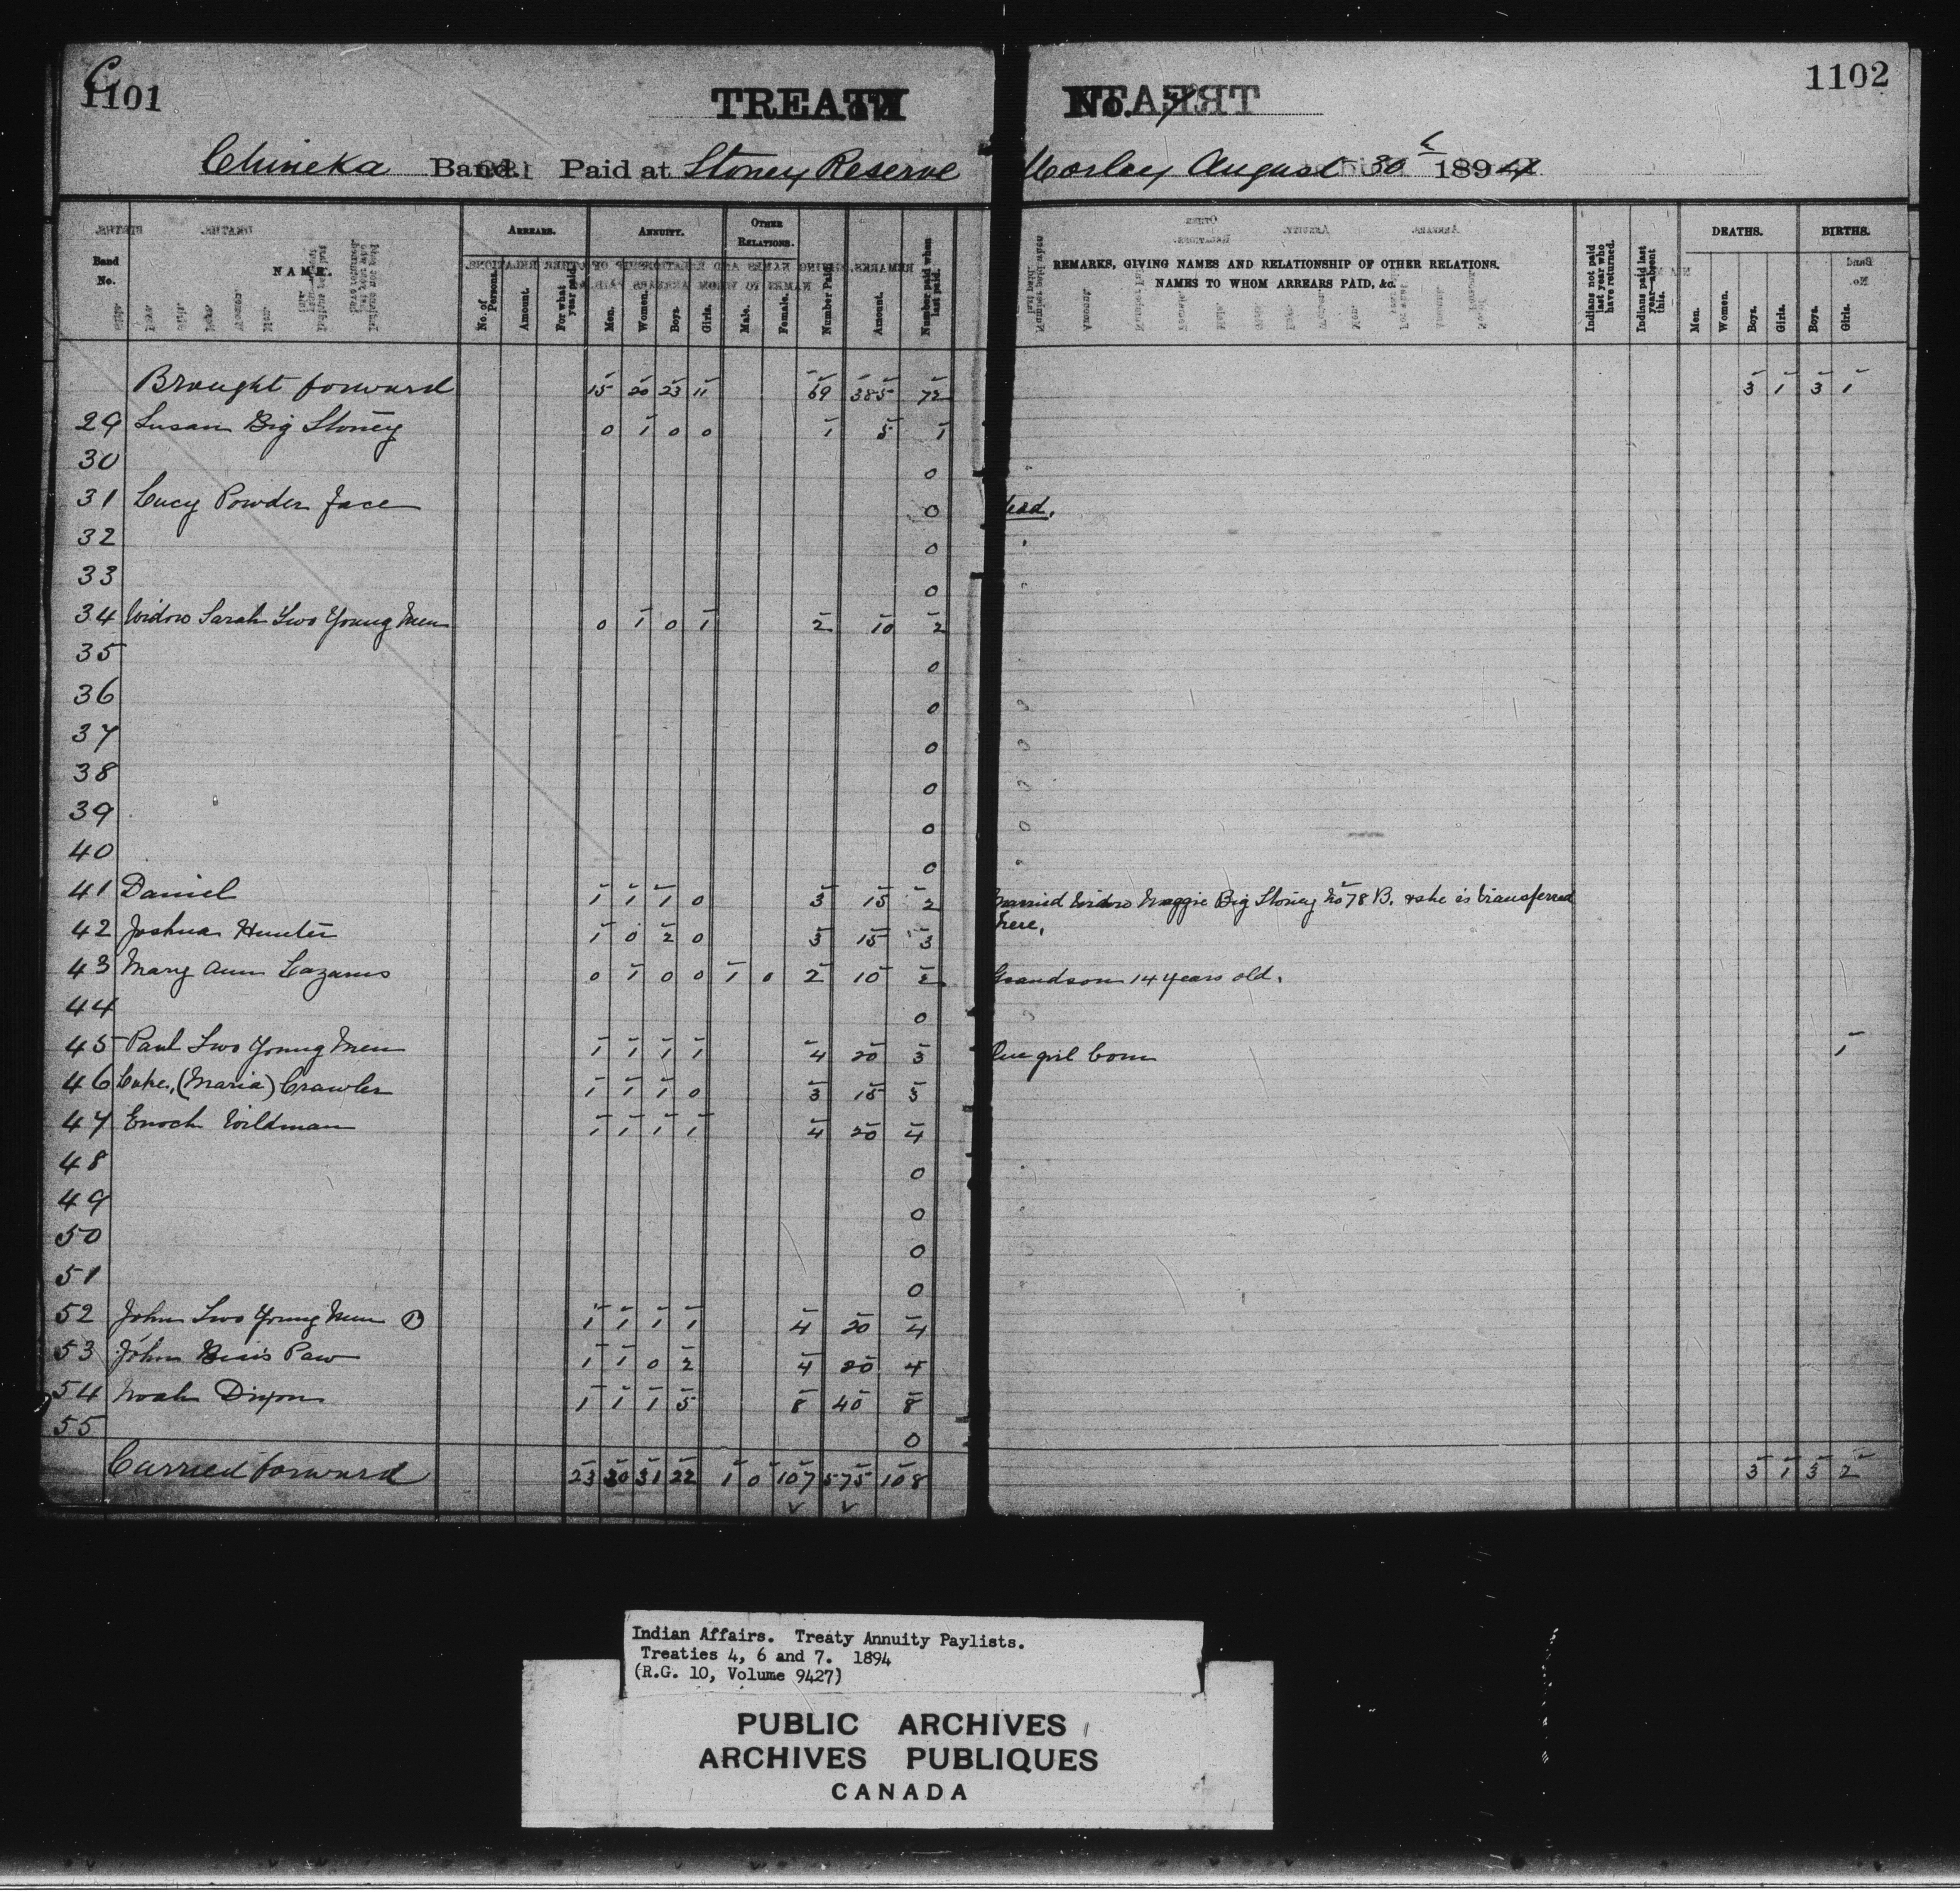 C
1101
TREATY
No. 7
1102
Chineka Band. Paid at Stoney Reserve Morley August 30th 1894
Band No.
NAME.
ARREARS.
No. of Persons.
Amount.
For what year paid.
ANNUITY.
Men.
Women.
Boys.
Girls.
OTHER RELATIONS.
Male.
Female.
Number Paid.
Amount.
Number paid when last paid.
REMARKS, GIVING NAMES AND RELATIONSHIP OF OTHER RELATIONS.
NAMES TO WHOM ARREARS PAID, &c.
Indians not paid last year who have returned.
Indians paid last year—absent this.
DEATHS.
Men.
Women.
Boys.
Girls.
BIRTHS.
Boys.
Girls.
Brought forward 15 20 23 11 69 385 72 3 1 3 1
29 Susan Big Stoney 0 1 0 0 1 5 1
30 0
31 Lucy Powder Face 0 Dead.
32 0
33 0
34 Widow Sarah Two Young Men 0 1 0 1 2 10 2
35 0
36 0
37 0
38 0
39 0
40 0
41 Daniel 1 1 1 0 3 15 2 Married Widow Maggie Big Stoney No 78 B. & she is transferred
here.
42 Joshua Hunter 1 0 2 0 3 15 3
43 Mary Ann Lazarus 0 1 0 0 1 0 2 10 2 Grandson 14 years old.
44 0
45 Paul Two Young Men 1 1 1 1 4 20 3 One girl born 1
46 Luke, (Maria) Crawler 1 1 1 0 3 15 3
47 Enoch Wildman 1 1 1 1 4 20 4
48 0
49 0
50 0
51 0
52 John Two Young Men B 1 1 1 1 4 20 4
53 John Bear's Paw 1 1 0 2 4 20 4
54 Noah Dixon 1 1 1 5 8 40 8
55 0
Carried forward 23 30 31 22 1 0 107 575 108 3 1 3 2
Indian Affairs. Treaty Annuity Paylists.
Treaties 4, 6 and 7. 1894
(R.G. 10, Volume 9427)
PUBLIC ARCHIVES
ARCHIVES PUBLIQUES
CANADA